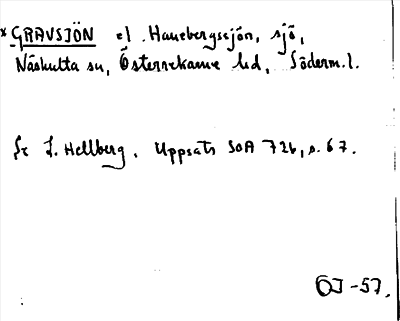 *GRAVSJÖN el. Hanebergssjön, sjö,
Näshulta sn, Österrekarne hd, Söderm.l.
Se L. Hellberg, Uppsats SOA 72b, s. 67.
OJ-57.